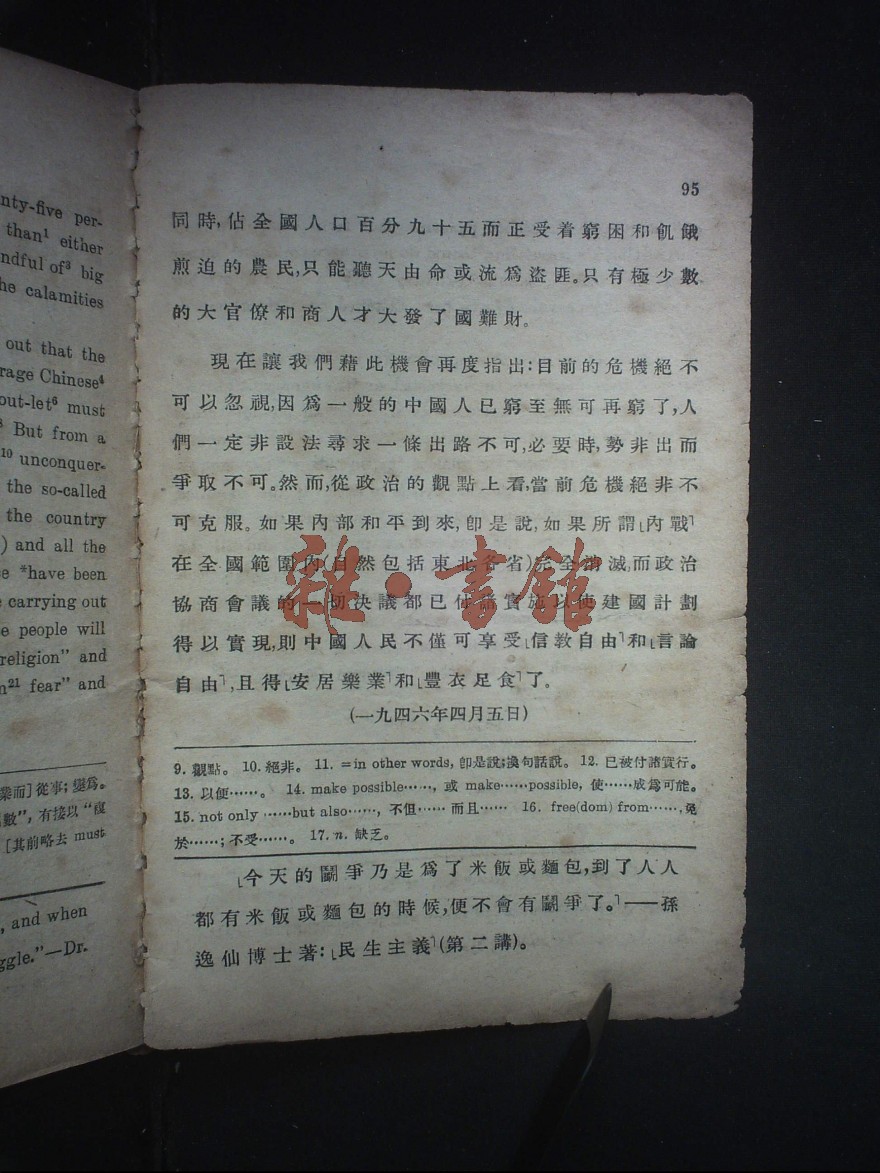 nty-five per-
than¹ either
ndful of³ big
he calamities
out that the
rage Chinese⁴
out-let⁶ must
But from a
¹⁰ unconquer-
the so-called
the country
) and all the
e *have been
carrying out
e people will
religion” and
n²¹ fear” and
業而] 從事; 變爲。
數”, 有接以 “復
[其前略去 must
, and when
ggle.”—Dr.
95
同時,佔全國人口百分九十五而正受着窮困和飢餓
煎迫的農民,只能聽天由命或流爲盜匪。只有極少數
的大官僚和商人才大發了國難財。
現在讓我們藉此機會再度指出:目前的危機絕不
可以忽視,因爲一般的中國人已窮至無可再窮了,人
們一定非設法尋求一條出路不可,必要時,勢非出而
爭取不可。然而,從政治的觀點上看,當前危機絕非不
可克服。如果內部和平到來,卽是說,如果所謂「內戰」
在全國範圍內(自然包括東北各省)完全消滅,而政治
協商會議的一切決議都已付諸實施以使建國計劃
得以實現,則中國人民不僅可享受「信教自由」和「言論
自由」,且得「安居樂業」和「豐衣足食」了。
(一九四六年四月五日)
9. 觀點。 10. 絕非。 11. =in other words, 卽是說;換句話說。 12. 已被付諸實行。
13. 以便……。 14. make possible……, 或 make……possible, 使……成爲可能。
15. not only ……but also……, 不但…… 而且…… 16. free(dom) from……,免
於……; 不受……。 17. n. 缺乏。
「今天的鬭爭乃是爲了米飯或麵包,到了人人
都有米飯或麵包的時候,便不會有鬭爭了。」——孫
逸仙博士著:「民生主義」(第二講)。
雜·書館